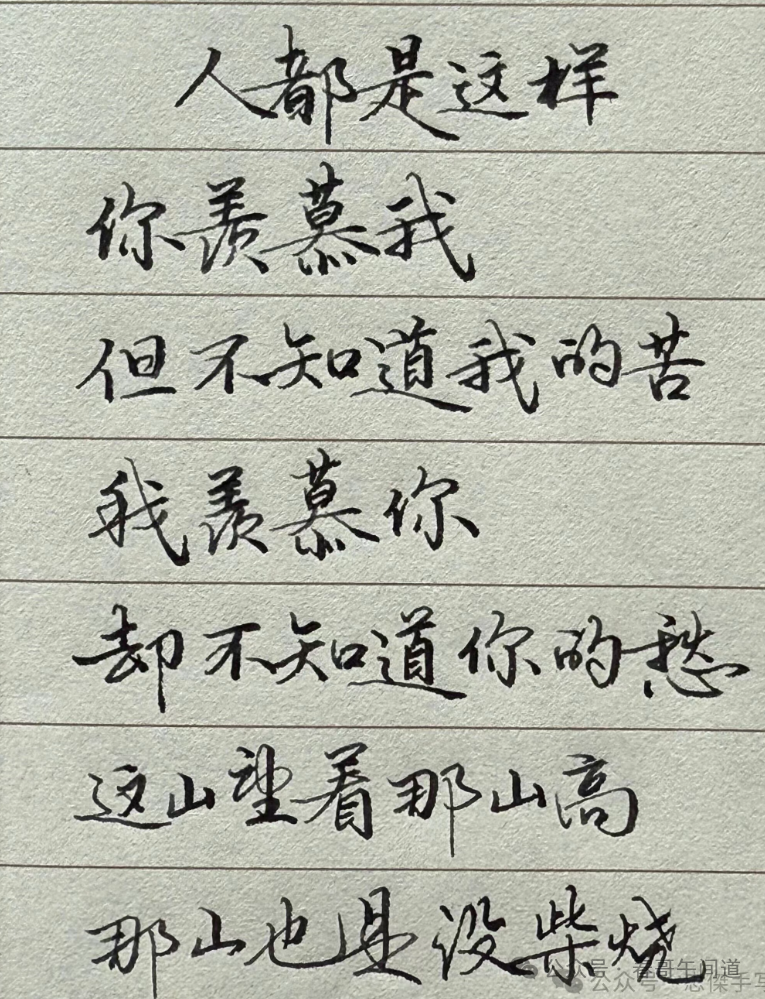 人都是这样
你羡慕我
但不知道我的苦
我羡慕你
却不知道你的愁
这山望着那山高
那山也是没柴烧
公众号
公众号